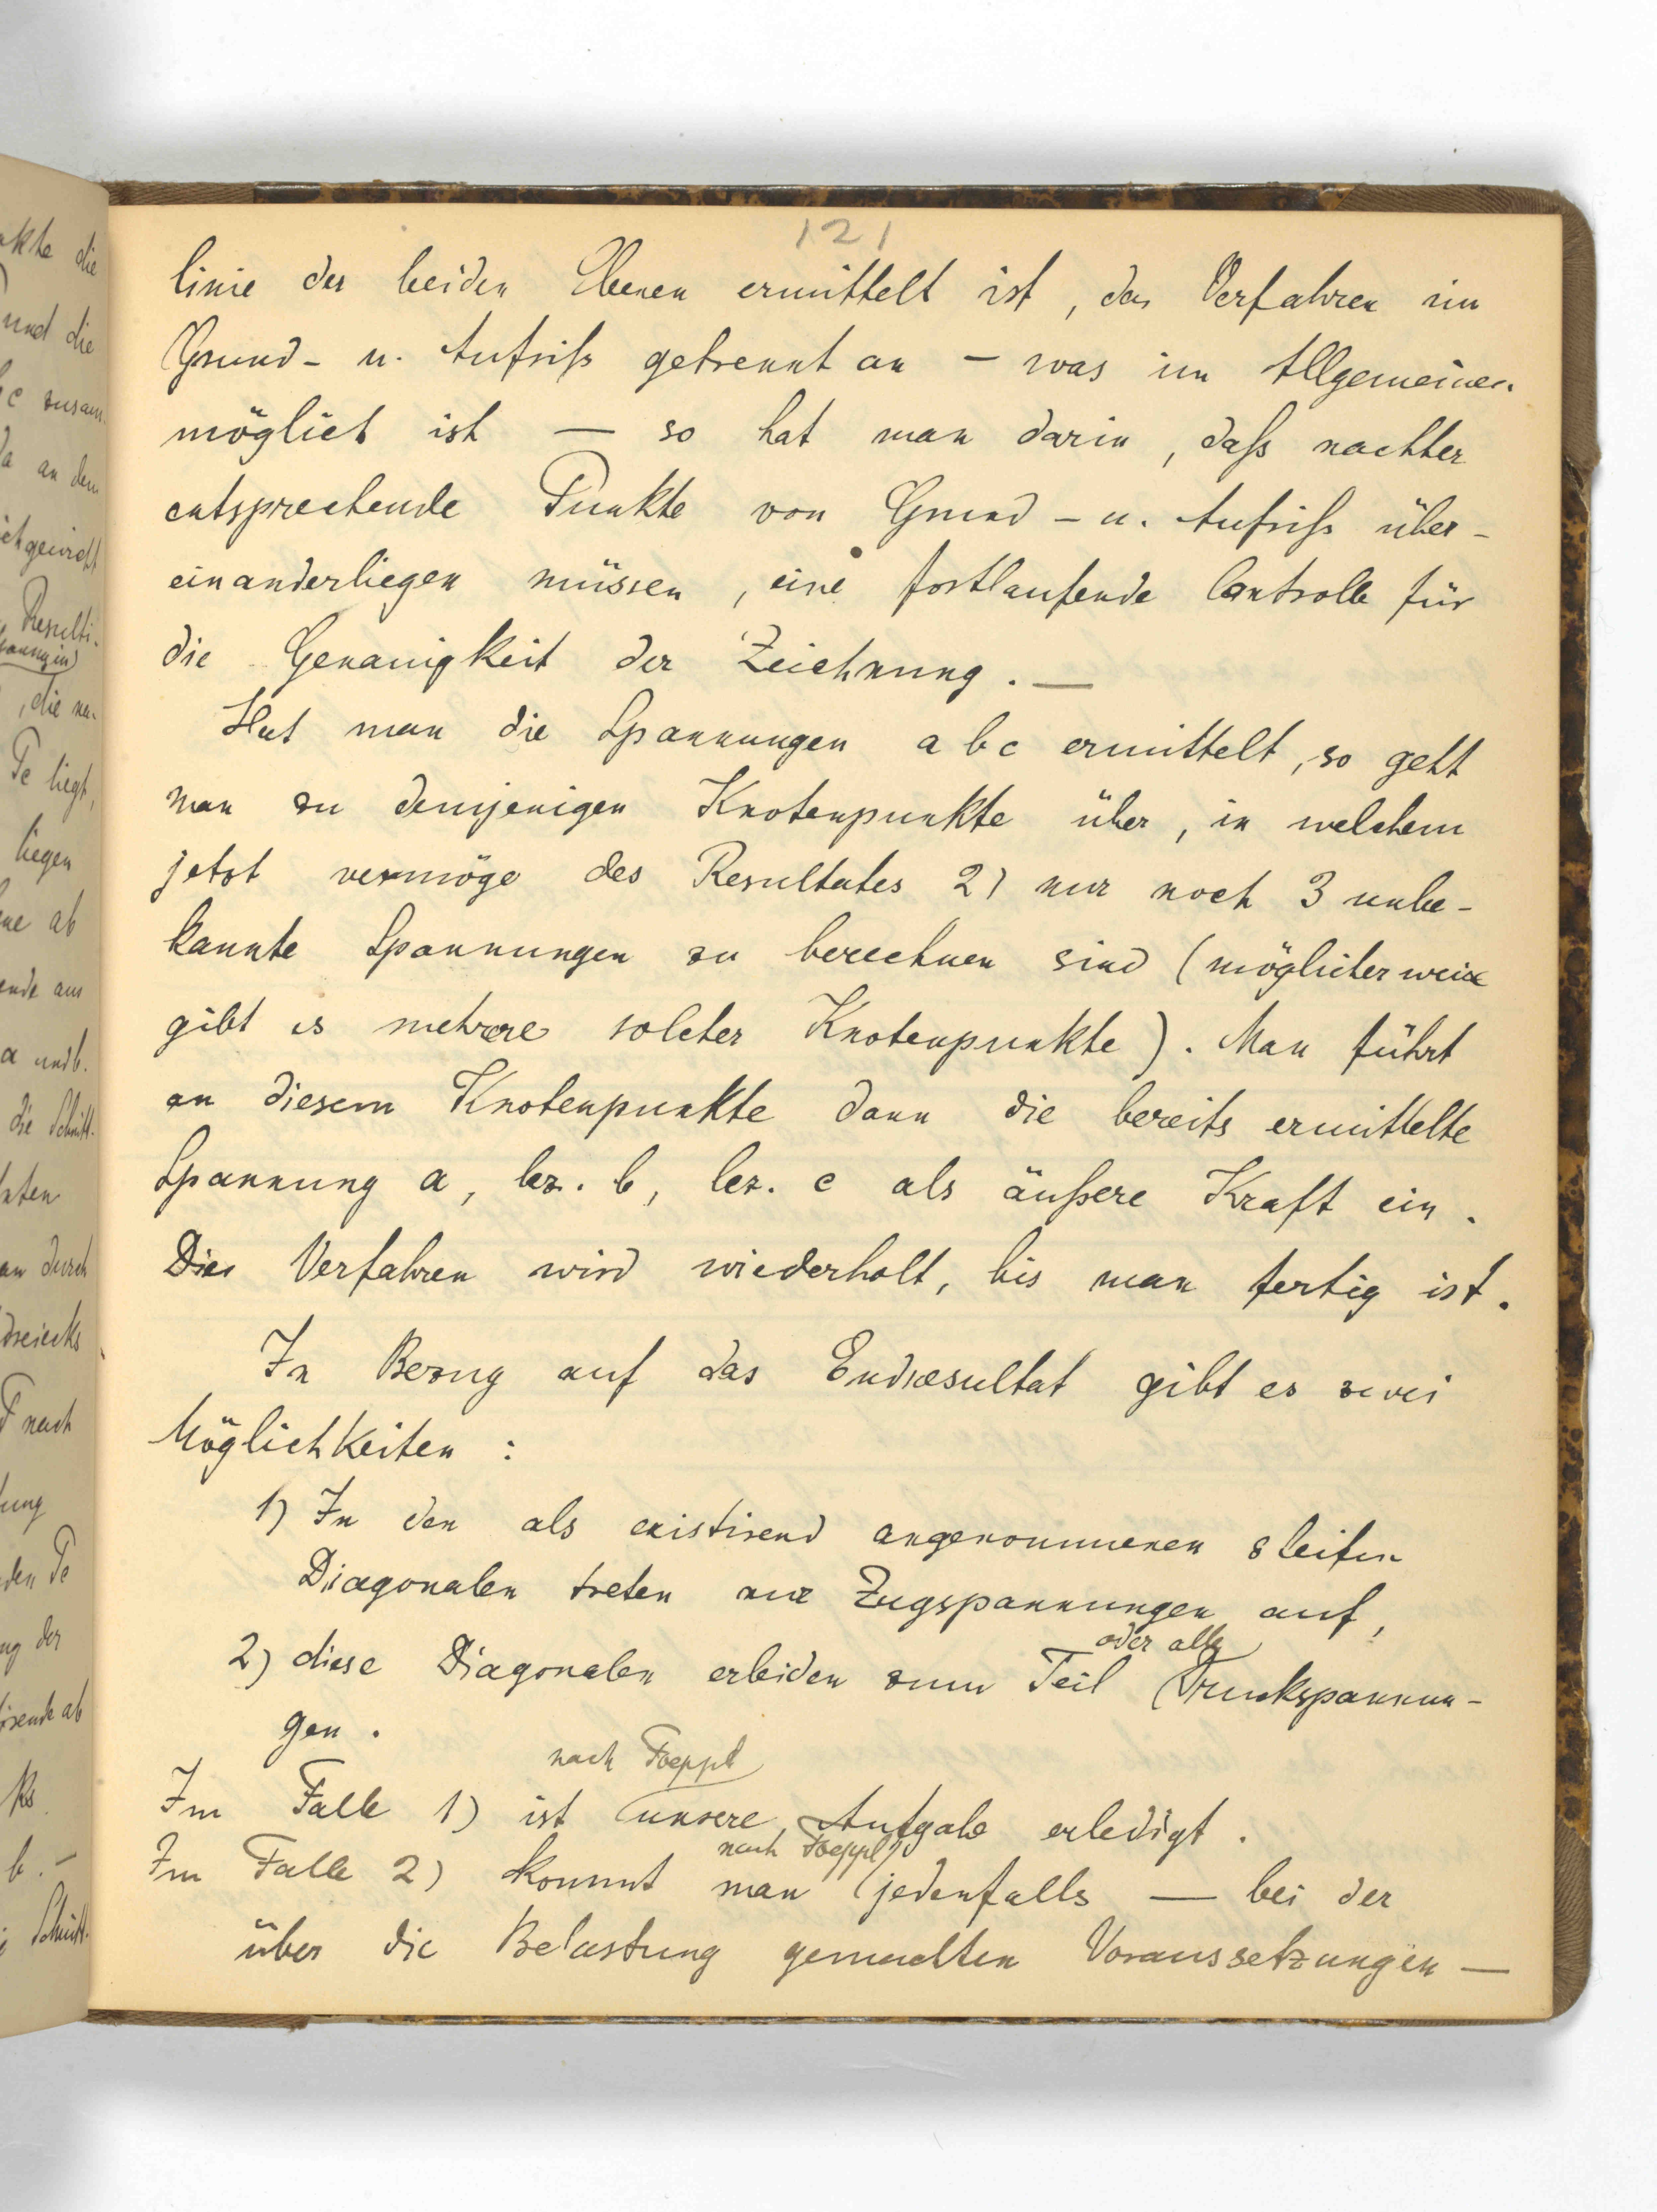 121
linie der beiden Ebenen ermittelt ist, das Verfahren im
Grund- u. Aufriß getrennt an — was im Allgemeinen
möglich ist — so hat man darin, daß nachher
entsprechende Punkte von Grund- u. Aufriß über-
einanderliegen müssen, eine fortlaufende Controlle für
die Genauigkeit der Zeichnung. —
Hat man die Spannungen a b c ermittelt, so geht
man zu demjenigen Knotenpunkte über, in welchem
jetzt vermöge des Resultates 2) nur noch 3 unbe-
kannte Spannungen zu berechnen sind (möglicherweise
gibt es mehrere solcher Knotenpunkte). Man führt
an diesem Knotenpunkte dann die bereits ermittelte
Spannung a, bez. b, bez. c als äußere Kraft ein.
Dies Verfahren wird wiederholt, bis man fertig ist.
In Bezug auf das Endresultat gibt es zwei
Möglichkeiten :
1) In den als existirend angenommenen steifen
Diagonalen treten nur Zugspannungen auf,
oder alle
2) diese Diagonalen erleiden zum Teil Druckspannun-
gen.
nach Foeppl
Im Falle 1) ist unsere Aufgabe erledigt.
nach Foeppl
Im Falle 2) kommt man jedenfalls — bei der
über die Belastung gemachten Voraussetzungen —
akte die
und die
c zusam-
da an dem
ichgewicht
Resulti-
, die na-
Te liegt,
liegen
ene ab
ende aus
a und b.
die Schnitt-
an durch
dreiecks
nach
den Te
ng der
b. —
Schnitt-